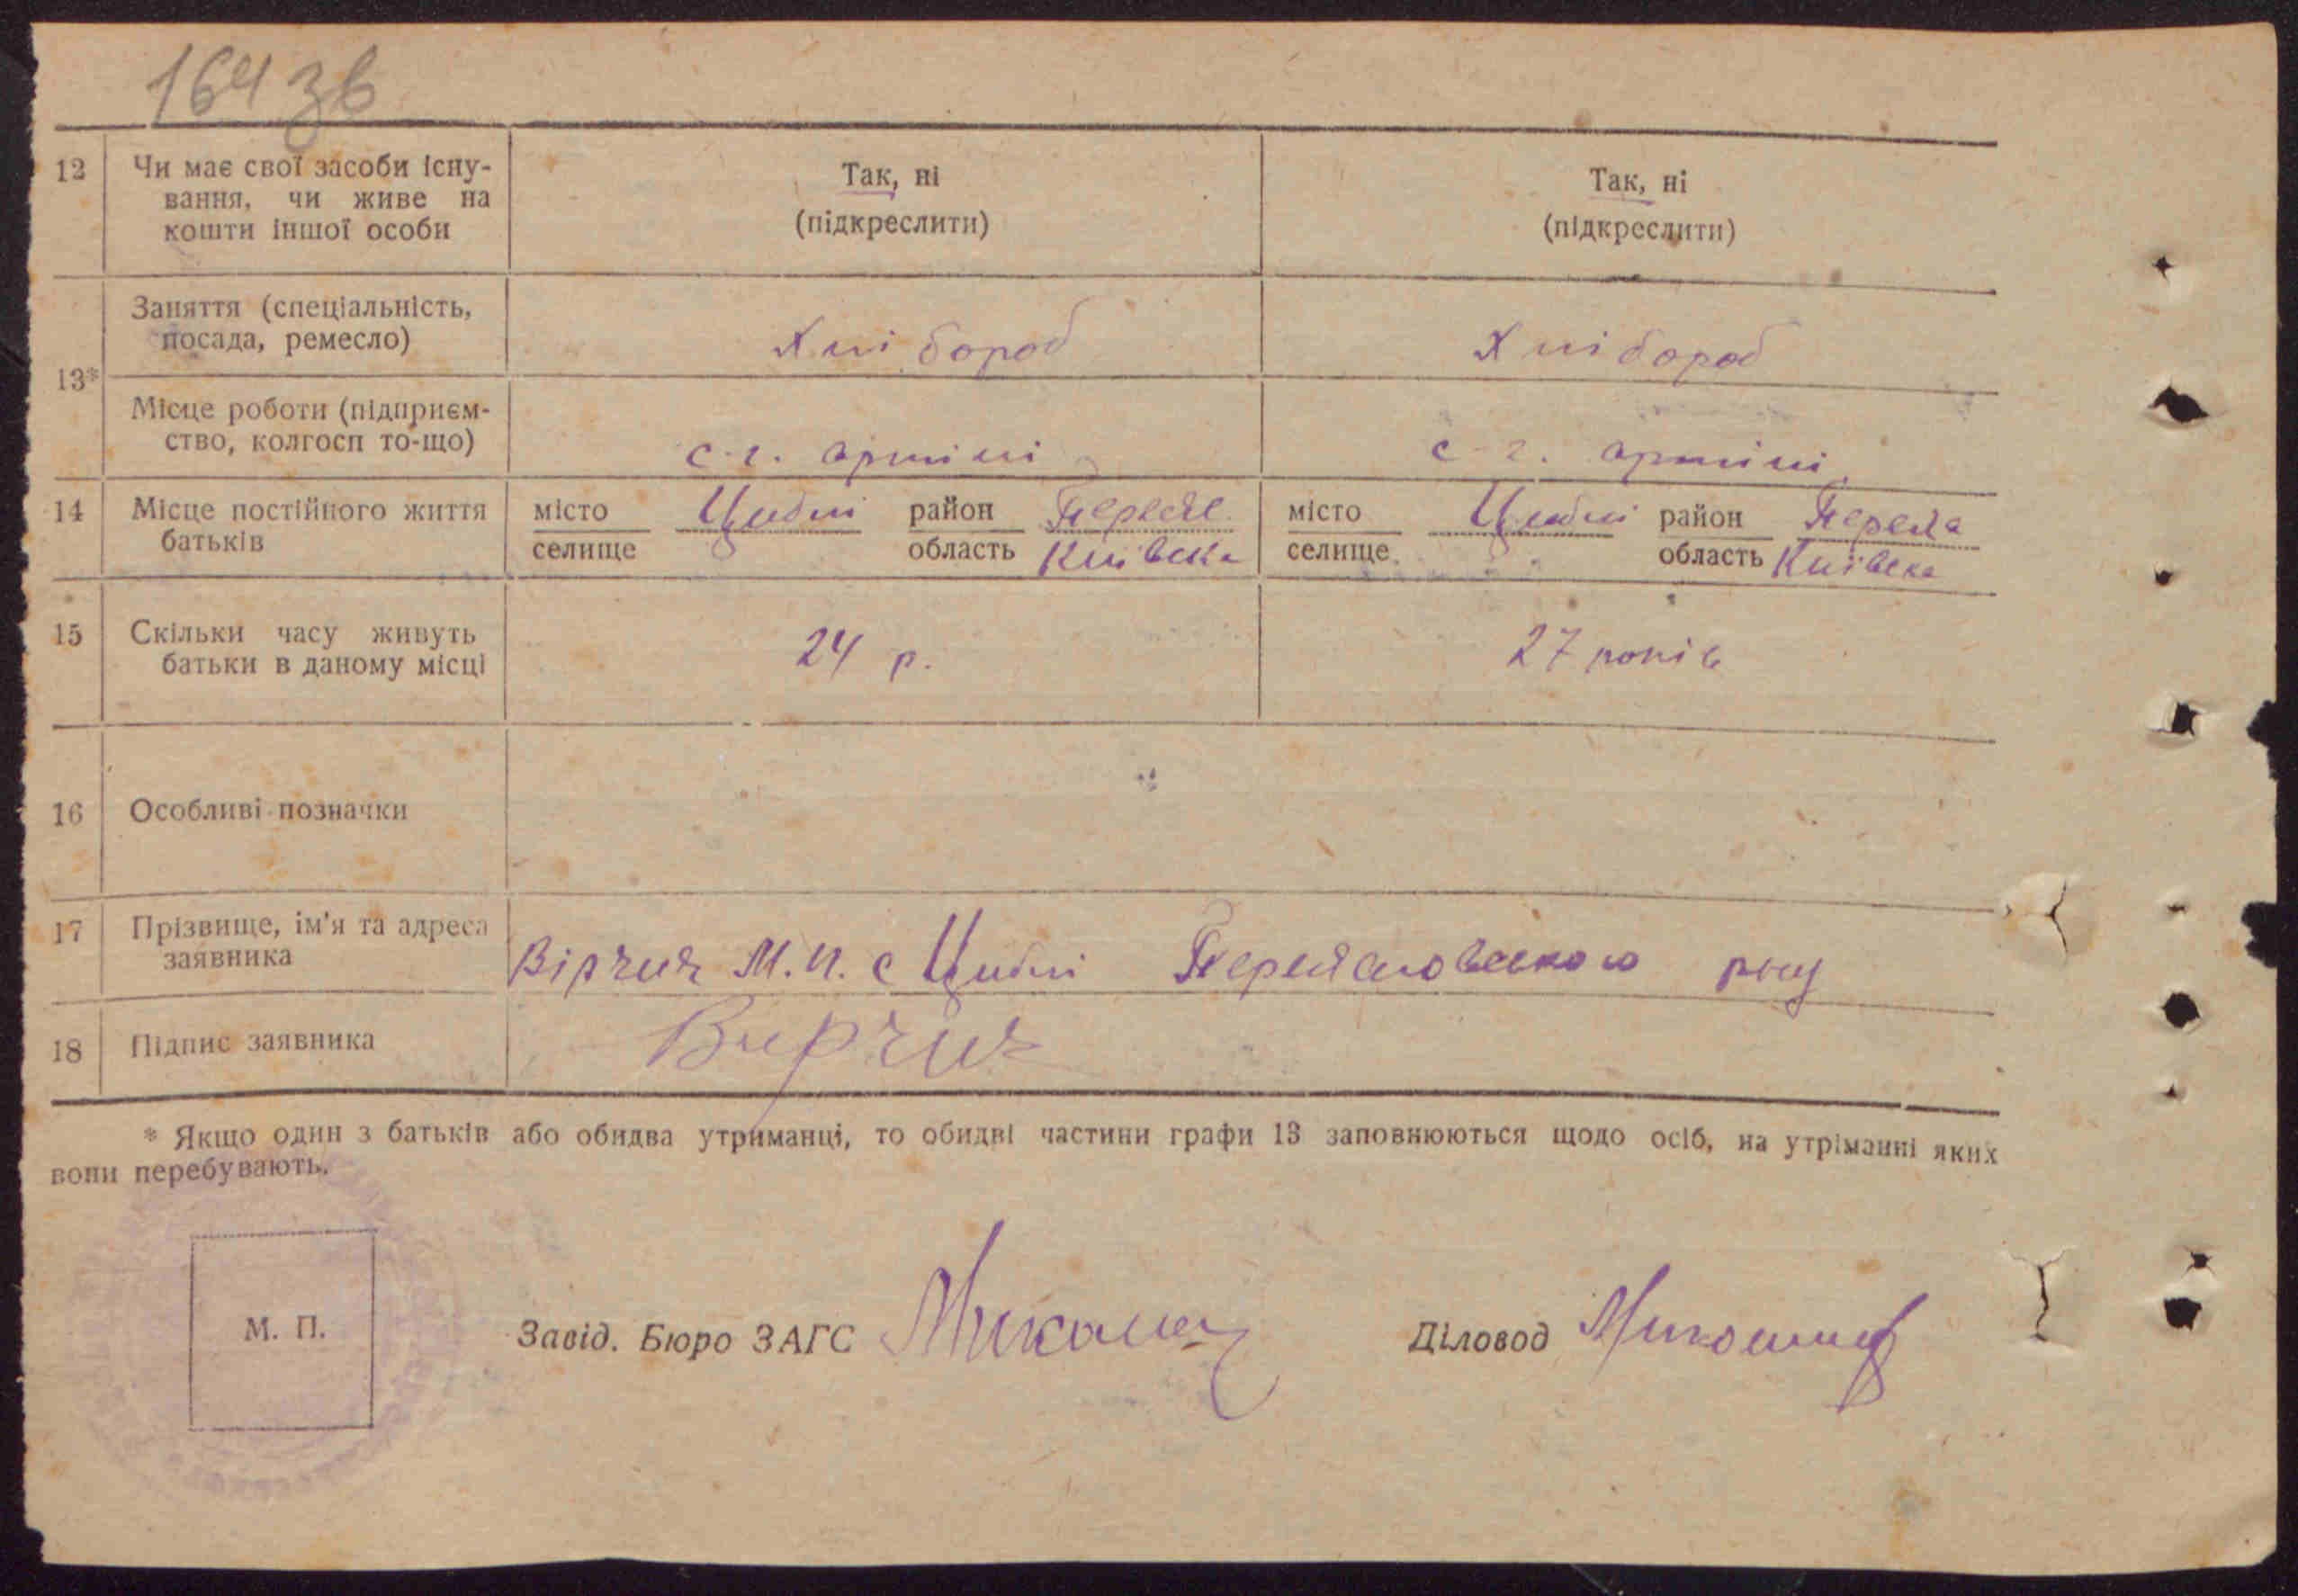 164 зв
12 Чи має свої засоби існу-
вання, чи живе на
кошти іншої особи
Так, ні
(підкреслити)
Так, ні
(підкреслити)
13*
Заняття (спеціальність,
посада, ремесло)
Хлібороб
Хлібороб
Місце роботи (підприєм-
ство, колгосп то-що)
с-г. артілі
с-г. артілі
14 Місце постійного життя
батьків
місто
селище
Циблі
район Переяс.
область Київська
місто
селище
Циблі
район Переяс
область Київська
15 Скільки часу живуть
батьки в даному місці
24 р.
27 років
16 Особливі позначки
17 Прізвище, ім'я та адреса
заявника
Вірчич М.И. с Циблі Переяславського р-ну
18 Підпис заявника
Вирчич
* Якщо один з батьків або обидва утриманці, то обидві частини графи 13 заповнюються щодо осіб, на утріманні яких
вони перебувають.
М. П.
Завід. Бюро ЗАГС
Діловод